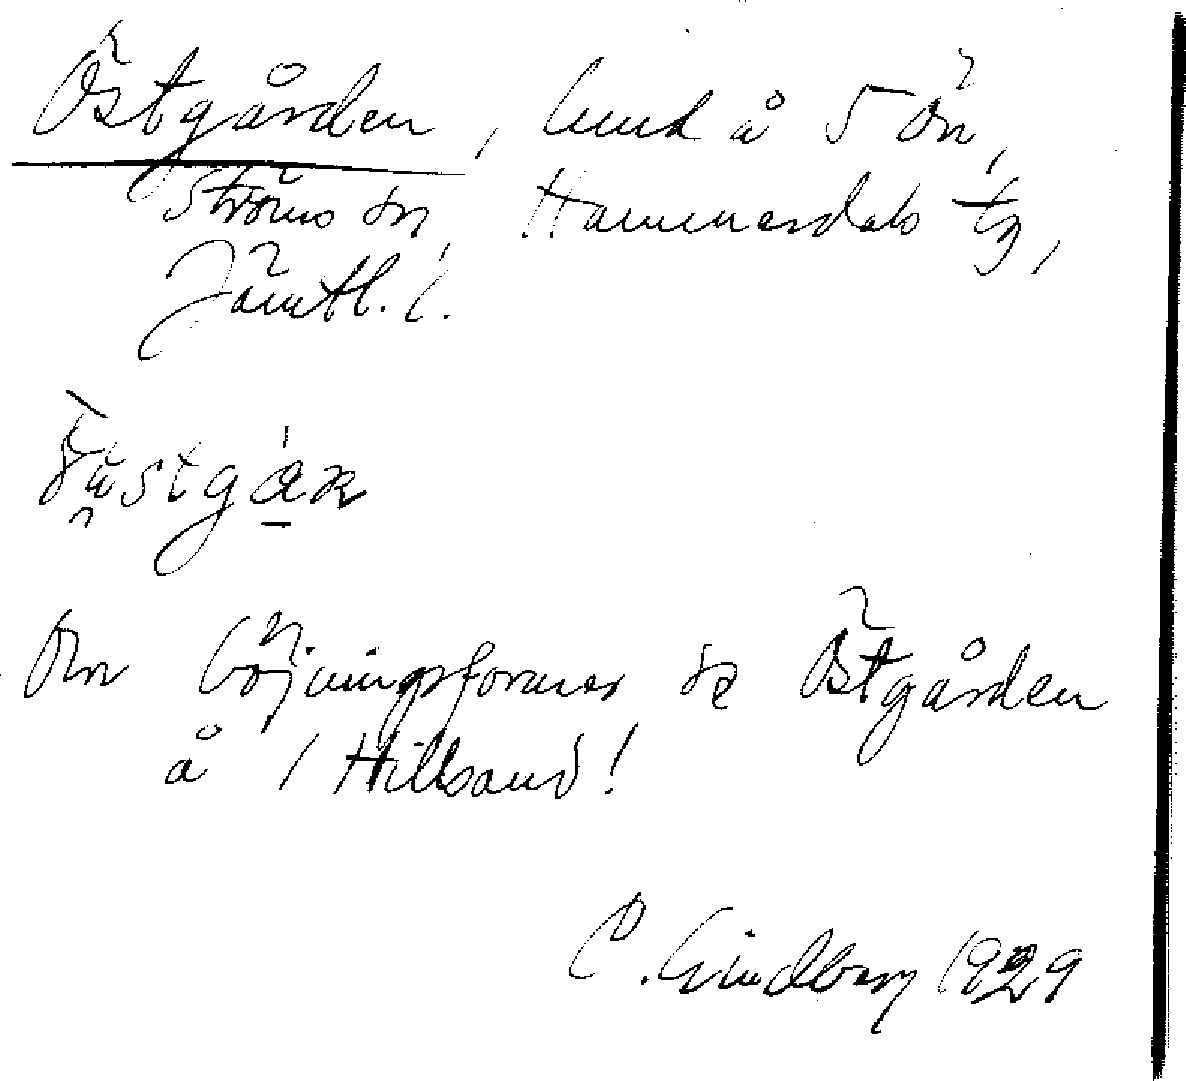 Östgården, hmd å 5 Ön,
Ströms sn, Hammerdals tg,
Jämtl. l.
Om böjningsformer se Östgården
å 1 Hillsand!
C. Lindberg 1929